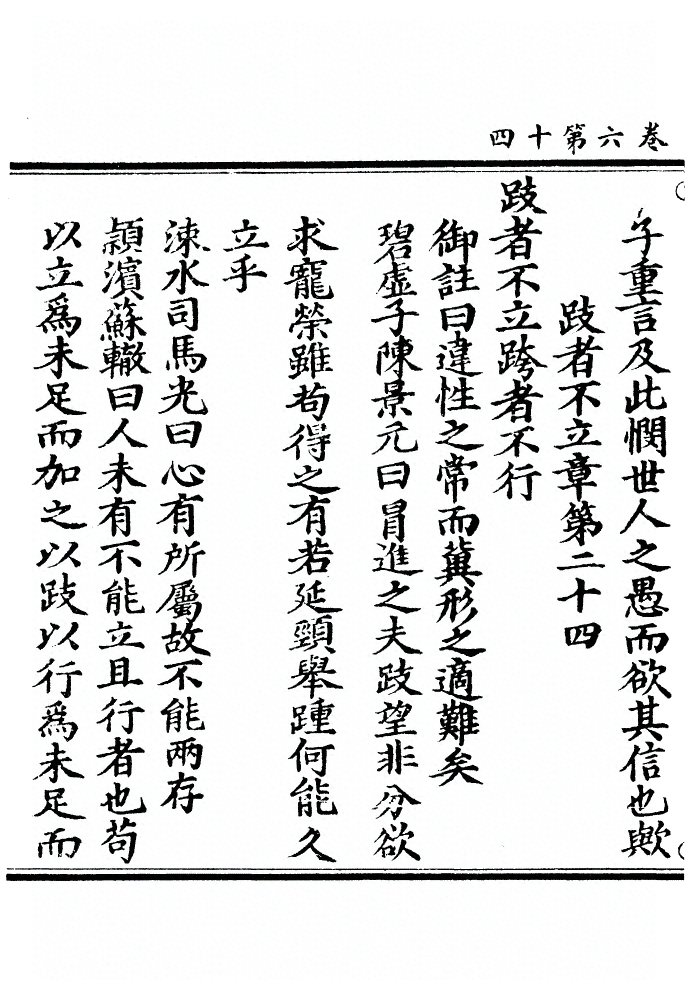 卷六第十四
子重言及此憫世人之愚而欲其信也歟
跂者不立章第二十四
跂者不立跨者不行
御註曰違性之常而冀形之適難矣
碧虛子陳景元曰冒進之夫跂望非分欲
求寵榮雖苟得之有若延頸舉踵何能久
立乎
涑水司馬光曰心有所屬故不能兩存
潁濱蘇轍曰人未有不能立且行者也苟
以立爲未足而加之以跂以行爲未足而